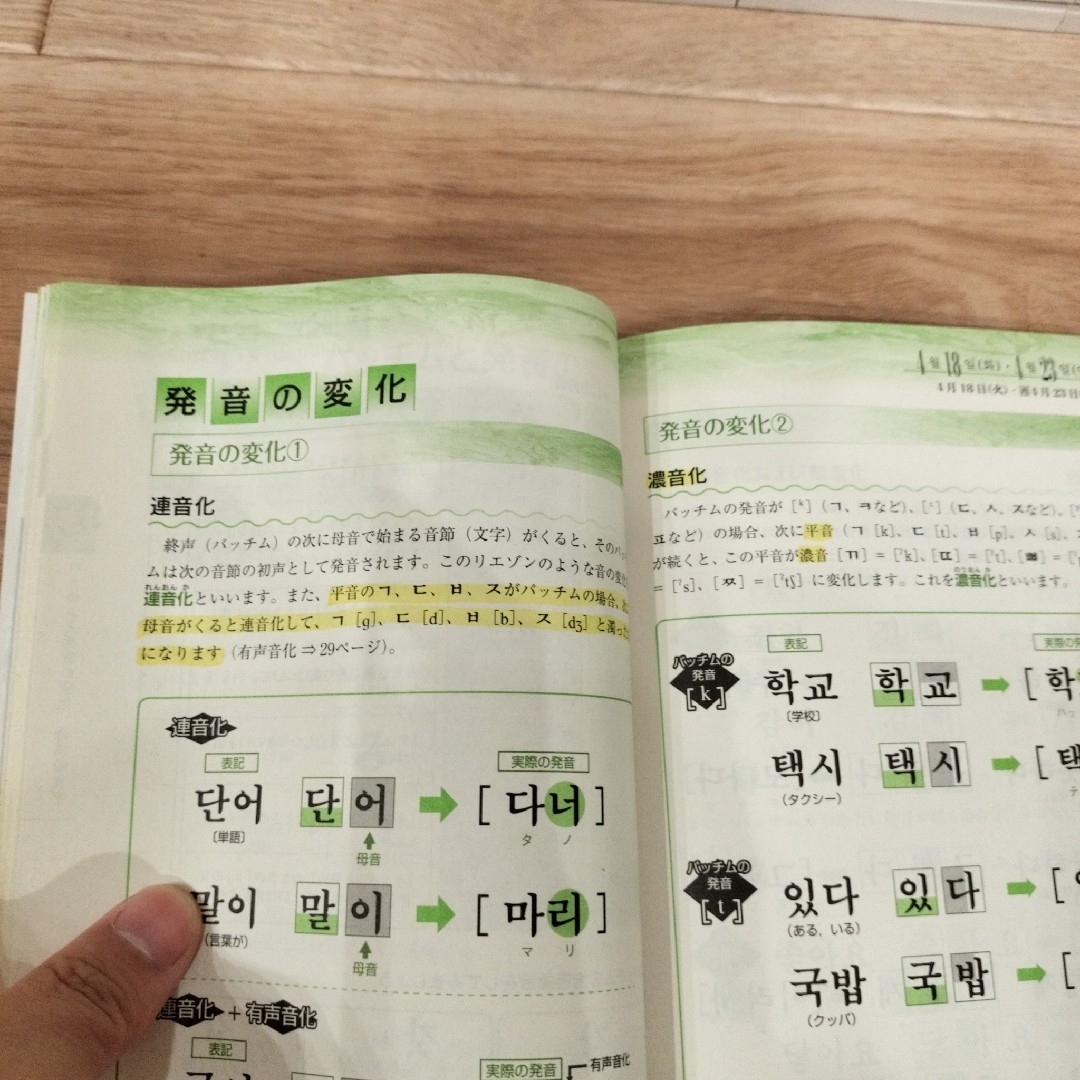 発音の変化
発音の変化①
連音化
終声（パッチム）の次に母音で始まる音節（文字）がくると、そのパッ
ムは次の音節の初声として発音されます。このリエゾンのような音の変化
れんおんか
連音化といいます。また、平音のㄱ、ㄷ、ㅂ、ㅈがパッチムの場合、次に
母音がくると連音化して、ㄱ［g］、ㄷ［d］、ㅂ［b］、ㅈ［dʒ］と濁った
になります（有声音化⇒29ページ）。
連音化
表記 実際の発音
단어 단 어 [ 다너 ]
〔単語〕 タ ノ
母音
말이 말 이 [ 마리 ]
（言葉が） マ リ
母音
連音化＋有声音化
表記
実際の発音 有声音化
4월 18일(화)・4월 23일(
4月18日(火)・4月23日(
発音の変化②
濃音化
パッチムの発音が［ᵏ］（ㄱ、ㅋなど）、［ᵗ］（ㄷ、ㅅ、ㅈなど）、［
ㅍなど）の場合、次に平音（ㄱ［k］、ㄷ［t］、ㅂ［p］、ㅅ［s］、
が続くと、この平音が濃音［ㄲ］＝［ˀk］、［ㄸ］＝［ˀt］、［ㅃ］＝
＝［ˀs］、［ㅉ］＝［ˀtʃ］に変化します。これを濃音化といいます。
表記 実際の発
パッチムの
発音
[k]
학교 학 교 [ 학
〔学校〕 ハッ
택시 택 시 [ 택
（タクシー） テ
パッチムの
発音
[t]
있다 있 다 [
（ある、いる）
국밥 국 밥 [
（クッパ）